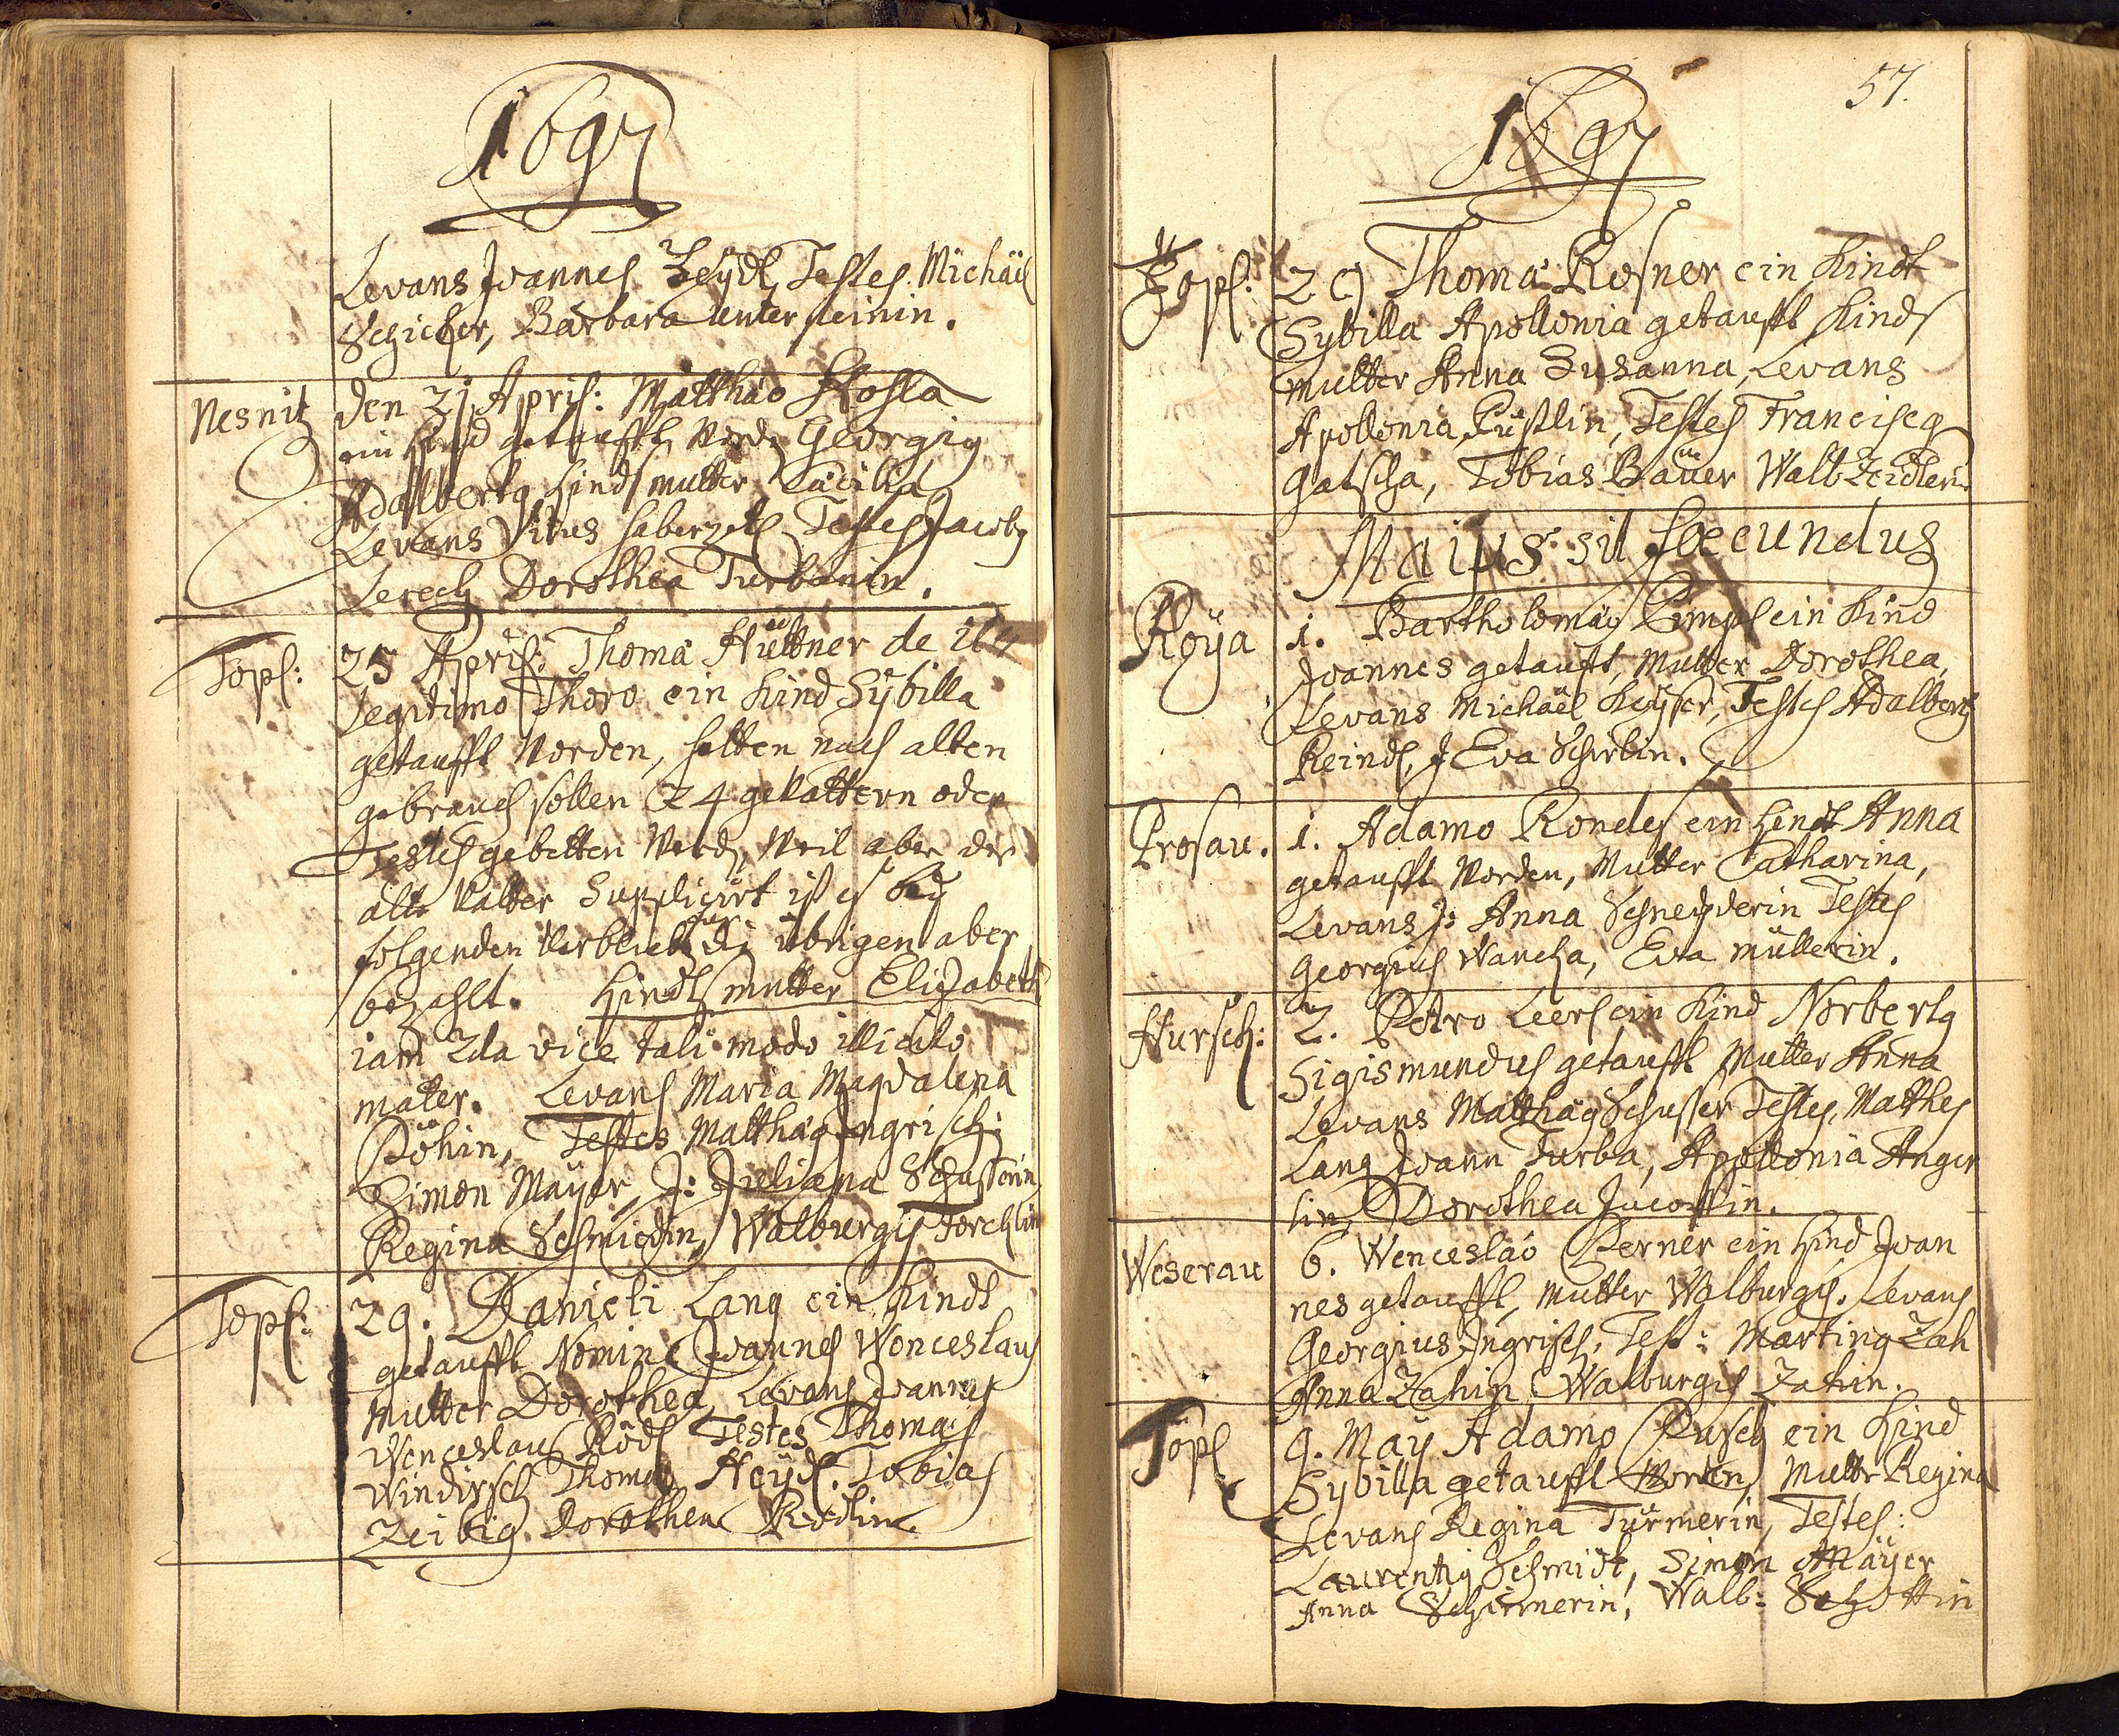 1697
Levans Joannes Heydl, Testes Michäel
Schicker, Barbara Unter steinin.
Nesnitz
den 21 April: Matthäo Stohla
ein Kind getaufft word. Georgig
Adalbertg Kinds mutter Cäcilia
Levans Vitus haberzetl Testes Jacobg
Lerech Dorothea Turbanin.
Topl:
25 April: Thoma Hüttner de
legitimo Thoro ein Kind Sybilla
getaufft worden, hetten nach alten
gebrauch sollen 24 gevattern oder
Testes gebetten werd, weil aber der
alte vatter Supplicirt ist es bey
folgenden verblieb, die übrigen aber
bezahlt. Kindts mutter Elisabeth
iam 2da vice tali modo illicito
mater. Levans Maria Magdalena
Pöhin, Testes Matthäg Ingrisch:
Simon Mayer, J: Juliana Schusterin
Regina Schmiedin, Walburgis Forchlin
Topl:
29. Danieli Lang ein Kindt
getaufft Nomine Joannes Wenceslaus
Mutter Dorothea, Levans Joannes
Wenceslaus Rödl Testes Thomas
Windisch Thomas Heydl. Tobias
Zeibig. Dorothea Rödlin.
57.
1697
Topl:
29 Thoma Rosner ein Kindt
Sybilla Apollonia getaufft Kinds
mutter Anna Susanna, Levans
Apollonia Püstlin, Testes Franciscg
Gatscha, Tobias Baüer Walb Zeidlerin
Majus sit foecundus
Roÿa
1. Bartholomäo Pimpl ein Kind
Joannes getaufft, Mutter Dorothea,
Levans Michäel Keyser, Testes Adalbertg
Reindl, J Eva Scherbin.
Prosau.
1. Adamo Rondes ein Kindt Anna
getaufft worden, Mutter Catharina,
Levans J: Anna Schneyderin Testes
Georgius Wancha, Eva müllerin.
Hursch:
2. Petro Leers ein Kind Norbertg
Sigismundus getaufft Mutter Anna
Levans Matthäg Schusser Testes, Mathes
Lang Joann Turba, Apollonia Anger
lin, Dorothea Jacobin.
Weserau
6. Wenceslao Perner ein Kind Joan
nes getaufft, Mutter Walburgis. Levans
Georgius Ingrisch, Test: Marting Zah
Anna Zahin, Walburgis Zahin.
Töpl
9. May Adamo Pusch ein Kind
Sybilla getaufft worden, Mutter Regina
Levans Regina Türmerin, Testes:
Laurentig Schmidt, Simon Mayer
Anna Schirmerin, Walb: Schottin